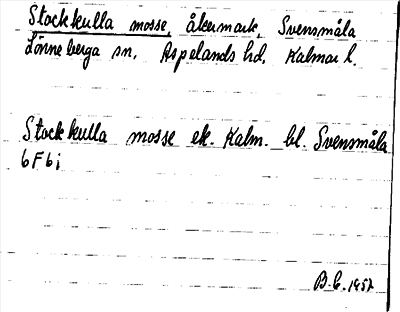 Stockkulla mosse, åkermark, Svensmåla
Lönneberga sn, Aspelands hd, Kalmar l.
Stockkulla mosse ek. Kalm. bl. Svensmåla
6F6i
B.G. 1957